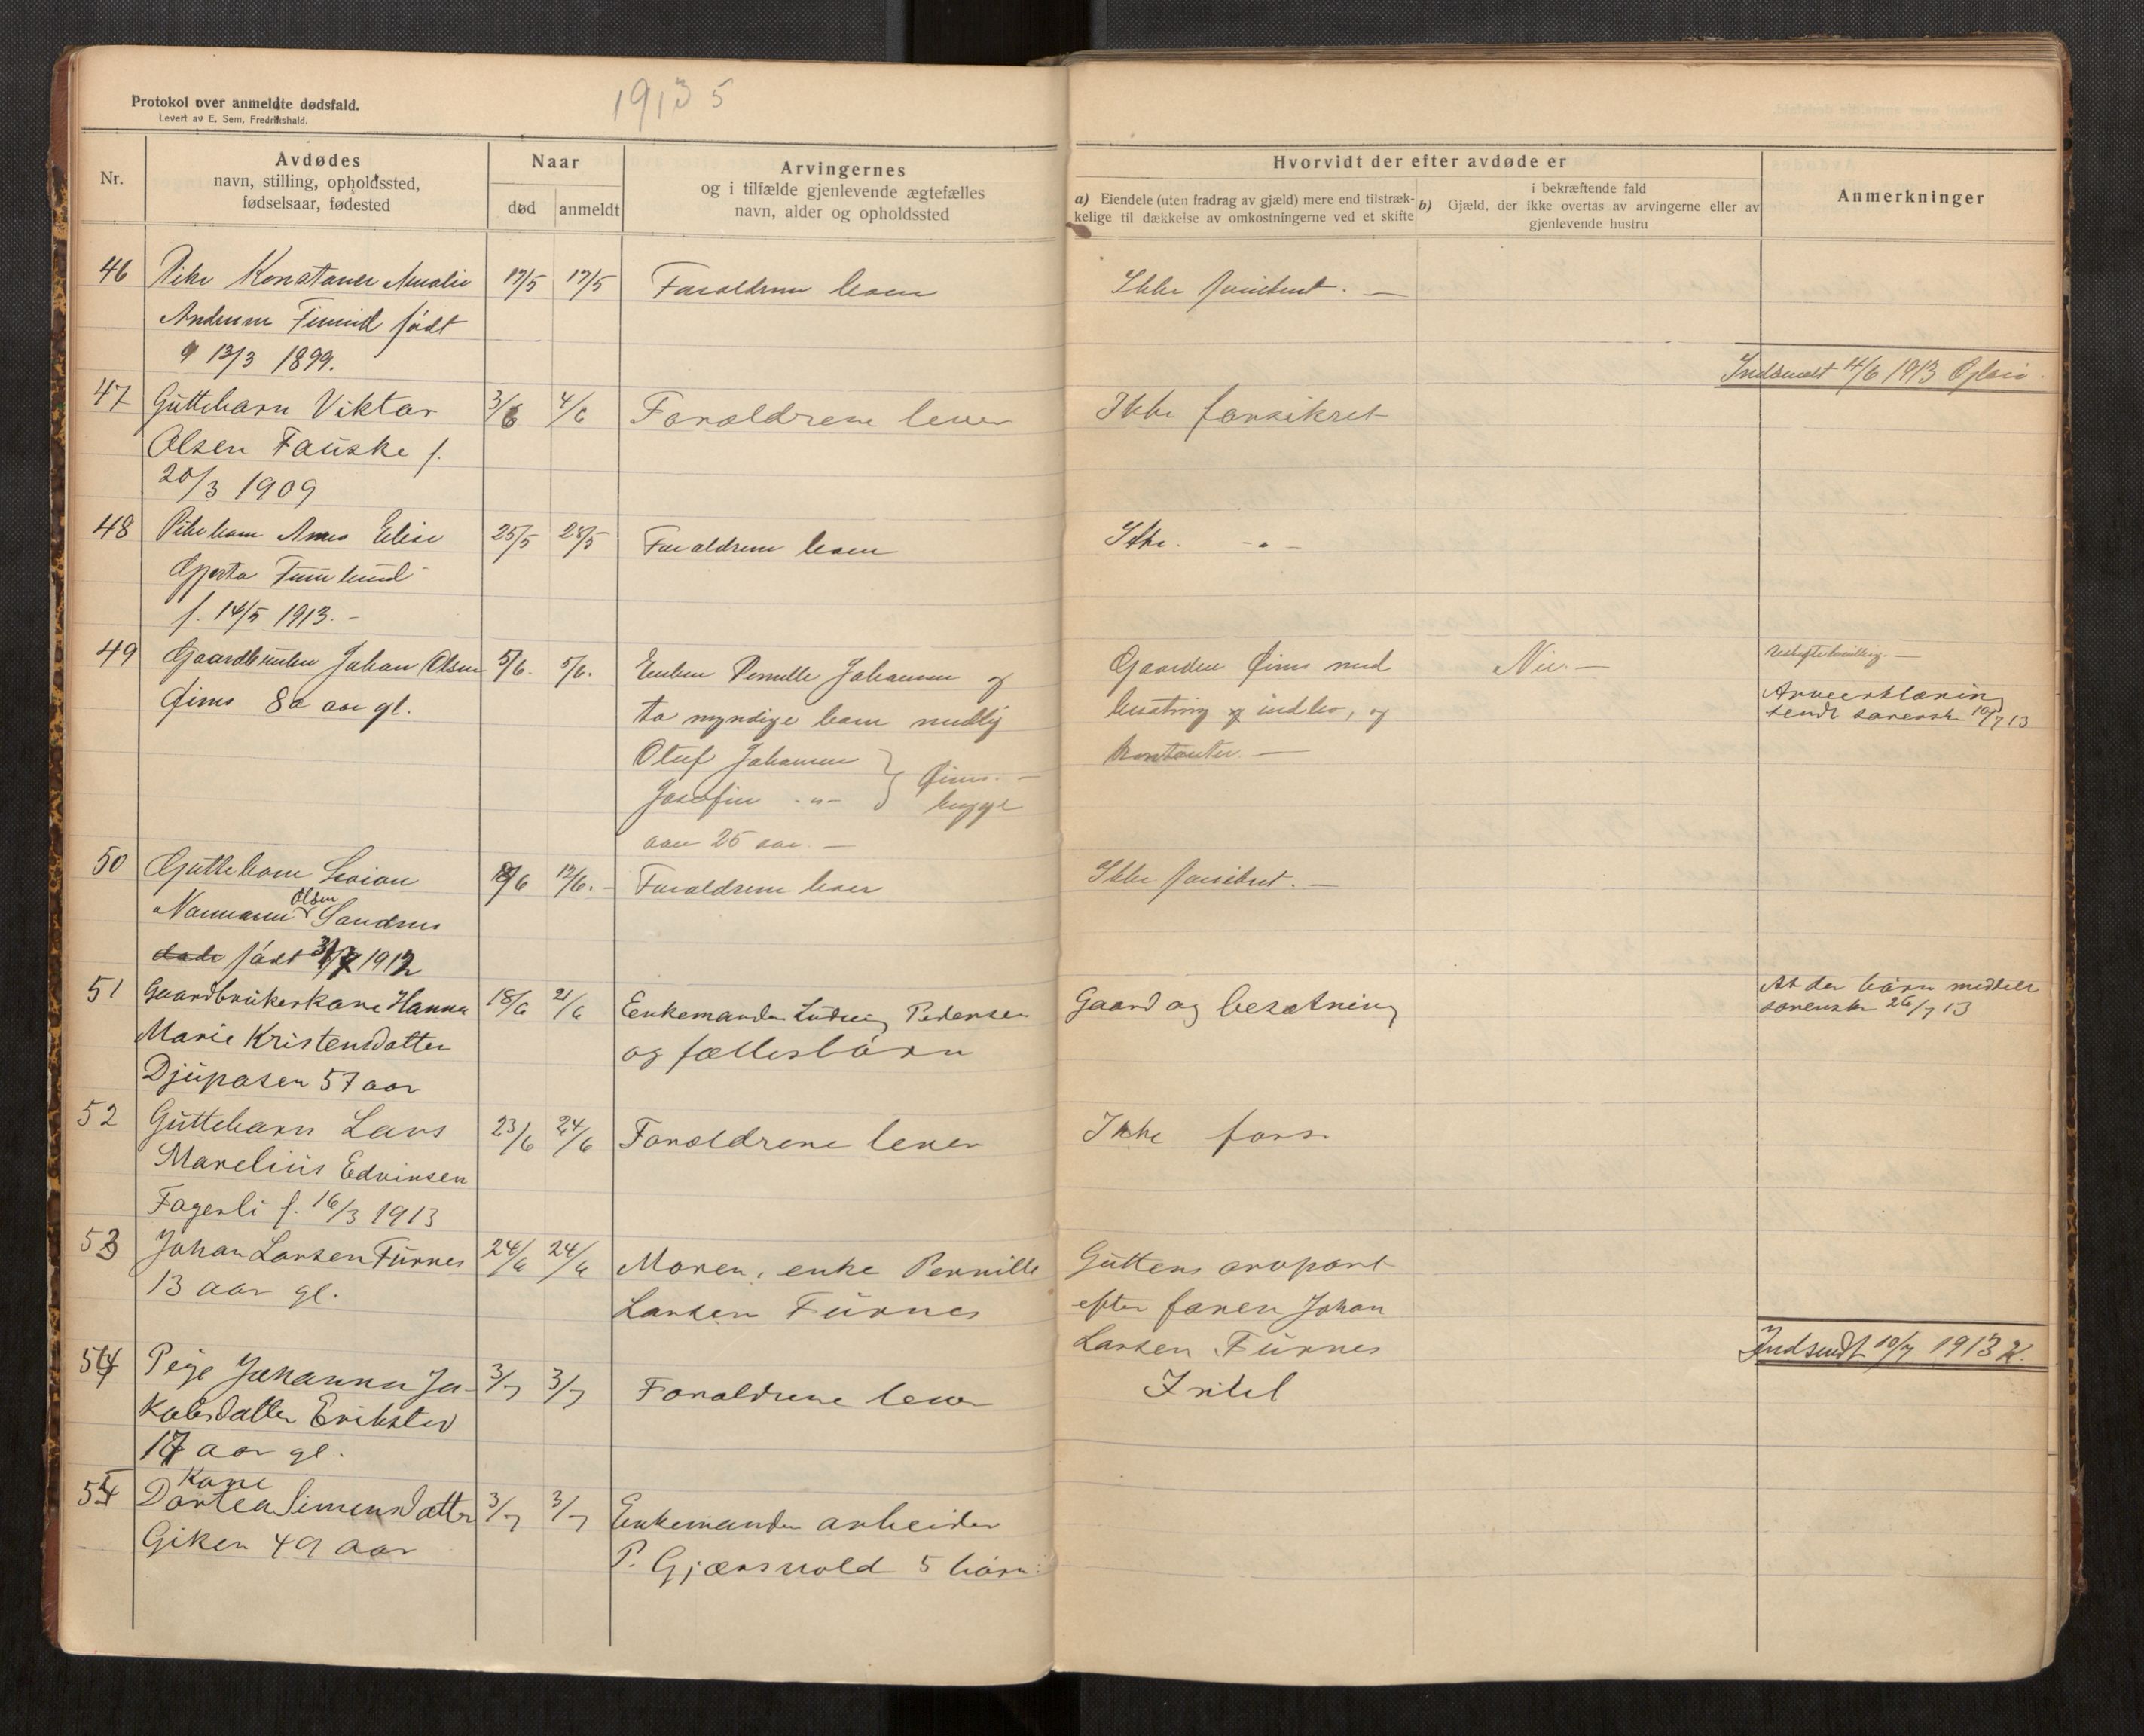 1913 5
Protokol over anmeldte dødsfald.
Levert av E. Sem, Fredrikshald.
Nr.
Avdødes
navn, stilling, opholdssted,
fødselsaar, fødested
Naar
død
anmeldt
Arvingernes
og i tilfælde gjenlevende ægtefælles
navn, alder og opholdssted
Hvorvidt der efter avdøde er
a) Eiendele (uten fradrag av gjæld) mere end tilstræk-
kelige til dækkelse av omkostningerne ved et skifte
i bekræftende fald
b) Gjæld, der ikke overtas av arvingerne eller av
gjenlevende hustru
Anmerkninger
46 Pike Konstance Amalie 17/5 17/5 Forældrene lever Ikke forsikret. —
født
13/3 1899.
Indsendt 4/6 1913
47 Guttebarn Viktor 3/6 4/6 Forældrene lever Ikke forsikret
Olsen Fauske f.
20/3 1909
48 Pikebarn Elise 25/5 28/5 Forældrene lever Ikke. -"-
f. 14/5 1913. -
49 Gaardbruker Johan Olsen 5/6. 5/6. Enken Pernille Johansen og Gaarden Øines med Nei. —
Øines aar gl. to myndige barn nemlig besætning og indbo, og Arveerklæring
sendt sorensk 10/7 13
Oluf Johansen kontanter. —
Josefine -"- } Øines. - begge
over 25 aar. —
50 Guttebarn 12/6. - Forældrene lever Ikke forsikret. —
Normann Olsen
født 1912
51 Gaardbrukerkone Hanna 18/6 21/6 Enkemanden Ludvig Pedersen Gaard og besætning At der børn meddelt
sorensk 26/7 13
Marie Kristensdatter og fællesbørn
Djupåsen 57 aar
52 Guttebarn Lars 23/6 24/6 Forældrene lever Ikke fors.
Marelius Edvinsen
Fagerli f. 16/3 1913
53 Johan Larsen Furnes 24/6 24/6 Moren, enke Pernille Guttens arvpart
13 aar gl. Larsen Furnes efter faren Johan
Larsen Furnes
Indsendt 10/7 1913
54 Pige Johanna Ja- 3/7 3/7 Forældrene lever Intet
kobsdatter Erikstad
17 aar gl.
55 Kone
Dortea Simensdatter 3/7 3/7 Enkemanden arbeider
Giken 49 aar P. Gjærsvold 5 børn.